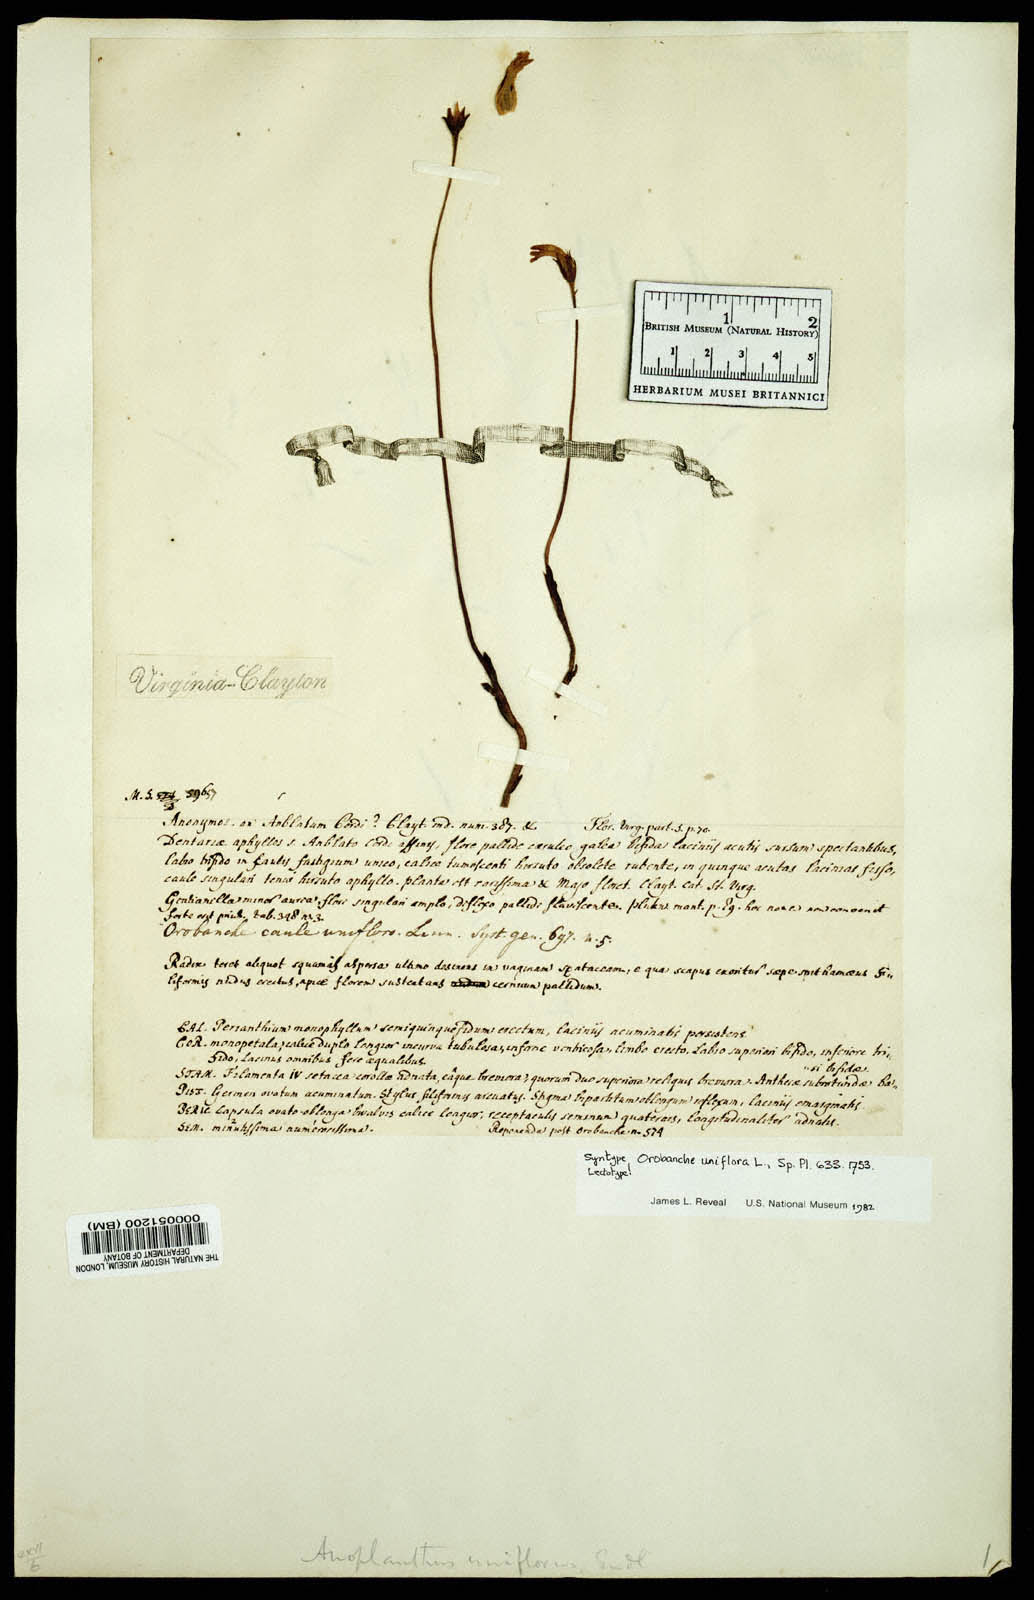 1 2
BRITISH MUSEUM (NATURAL HISTORY)
1 2 3 4 5
HERBARIUM MUSEI BRITANNICI
Virginia-Clayton
Anonymos. an Anblatum Cordi? Clayt. ind. num. 387. &c. Flor. Virg. part. 3. p. 70.
Dentaria aphyllos s. Anblato Cordi affinis, flore pallide cæruleo galea bifida laciniis acutis sursum spectantibus,
labio trifido in faucis fastigium uneo, calice tumescenti hirsuto obsolete rubente, in quinque acutas lacinias fisso,
caule singulari tenui hirsuto aphyllo. planta est rarissima & Majo floret. Clayt. Cat. St. Virg.
Gentianella minor aurea flore singulari amplo, diflexo pallide flavescente. Pluk. mant. p. hoc non convenit
forte est tab. 348 n. 3.
Orobanche caule unifloro. Linn. Syst. gen. 697. n. 5.
Radix teres aliquot squamis aspersa ultimo desinens in vaginam spataceam, e qua scapus exoritur sæpe spithamæus fi-
liformis nudus erectus, apice florem sustentans cernuum pallidum.
CAL. Perianthium monophyllum semiquinquefidum erectum, laciniis acuminatis persistens
COR. monopetala, calice duplo longior incurva tubulosa, inferne ventricosa, limbo erecto. Labio superiori bifido, inferiore tri-
fido, Lacinus omnibus fere æqualibus.
si bifidæ
STAM. Filamenta IV setacea corollæ adnata, eâque breviora, quorum duo superiora reliquis breviora. Antheræ subrotundæ ba-
PIST. Germen ovatum acuminatum. Stylus filiformis arcuatus. Stigma bipartitum oblongum reflexum, laciniis emarginatis
PERIC. Capsula ovato-oblonga bivalvis calice longior, receptaculis seminum quaternis, longitudinaliter adnatis.
SEM. minutissima numerosissima. Reponenda post Orobanche n. 574
Syntype Orobanche uniflora L., Sp. Pl. 633. 1753.
Lectotype!
James L. Reveal U.S. National Museum 1982
THE NATURAL HISTORY MUSEUM, LONDON
DEPARTMENT OF BOTANY
000051200 (BM)
Anoplanthus uniflorus, Endl
1